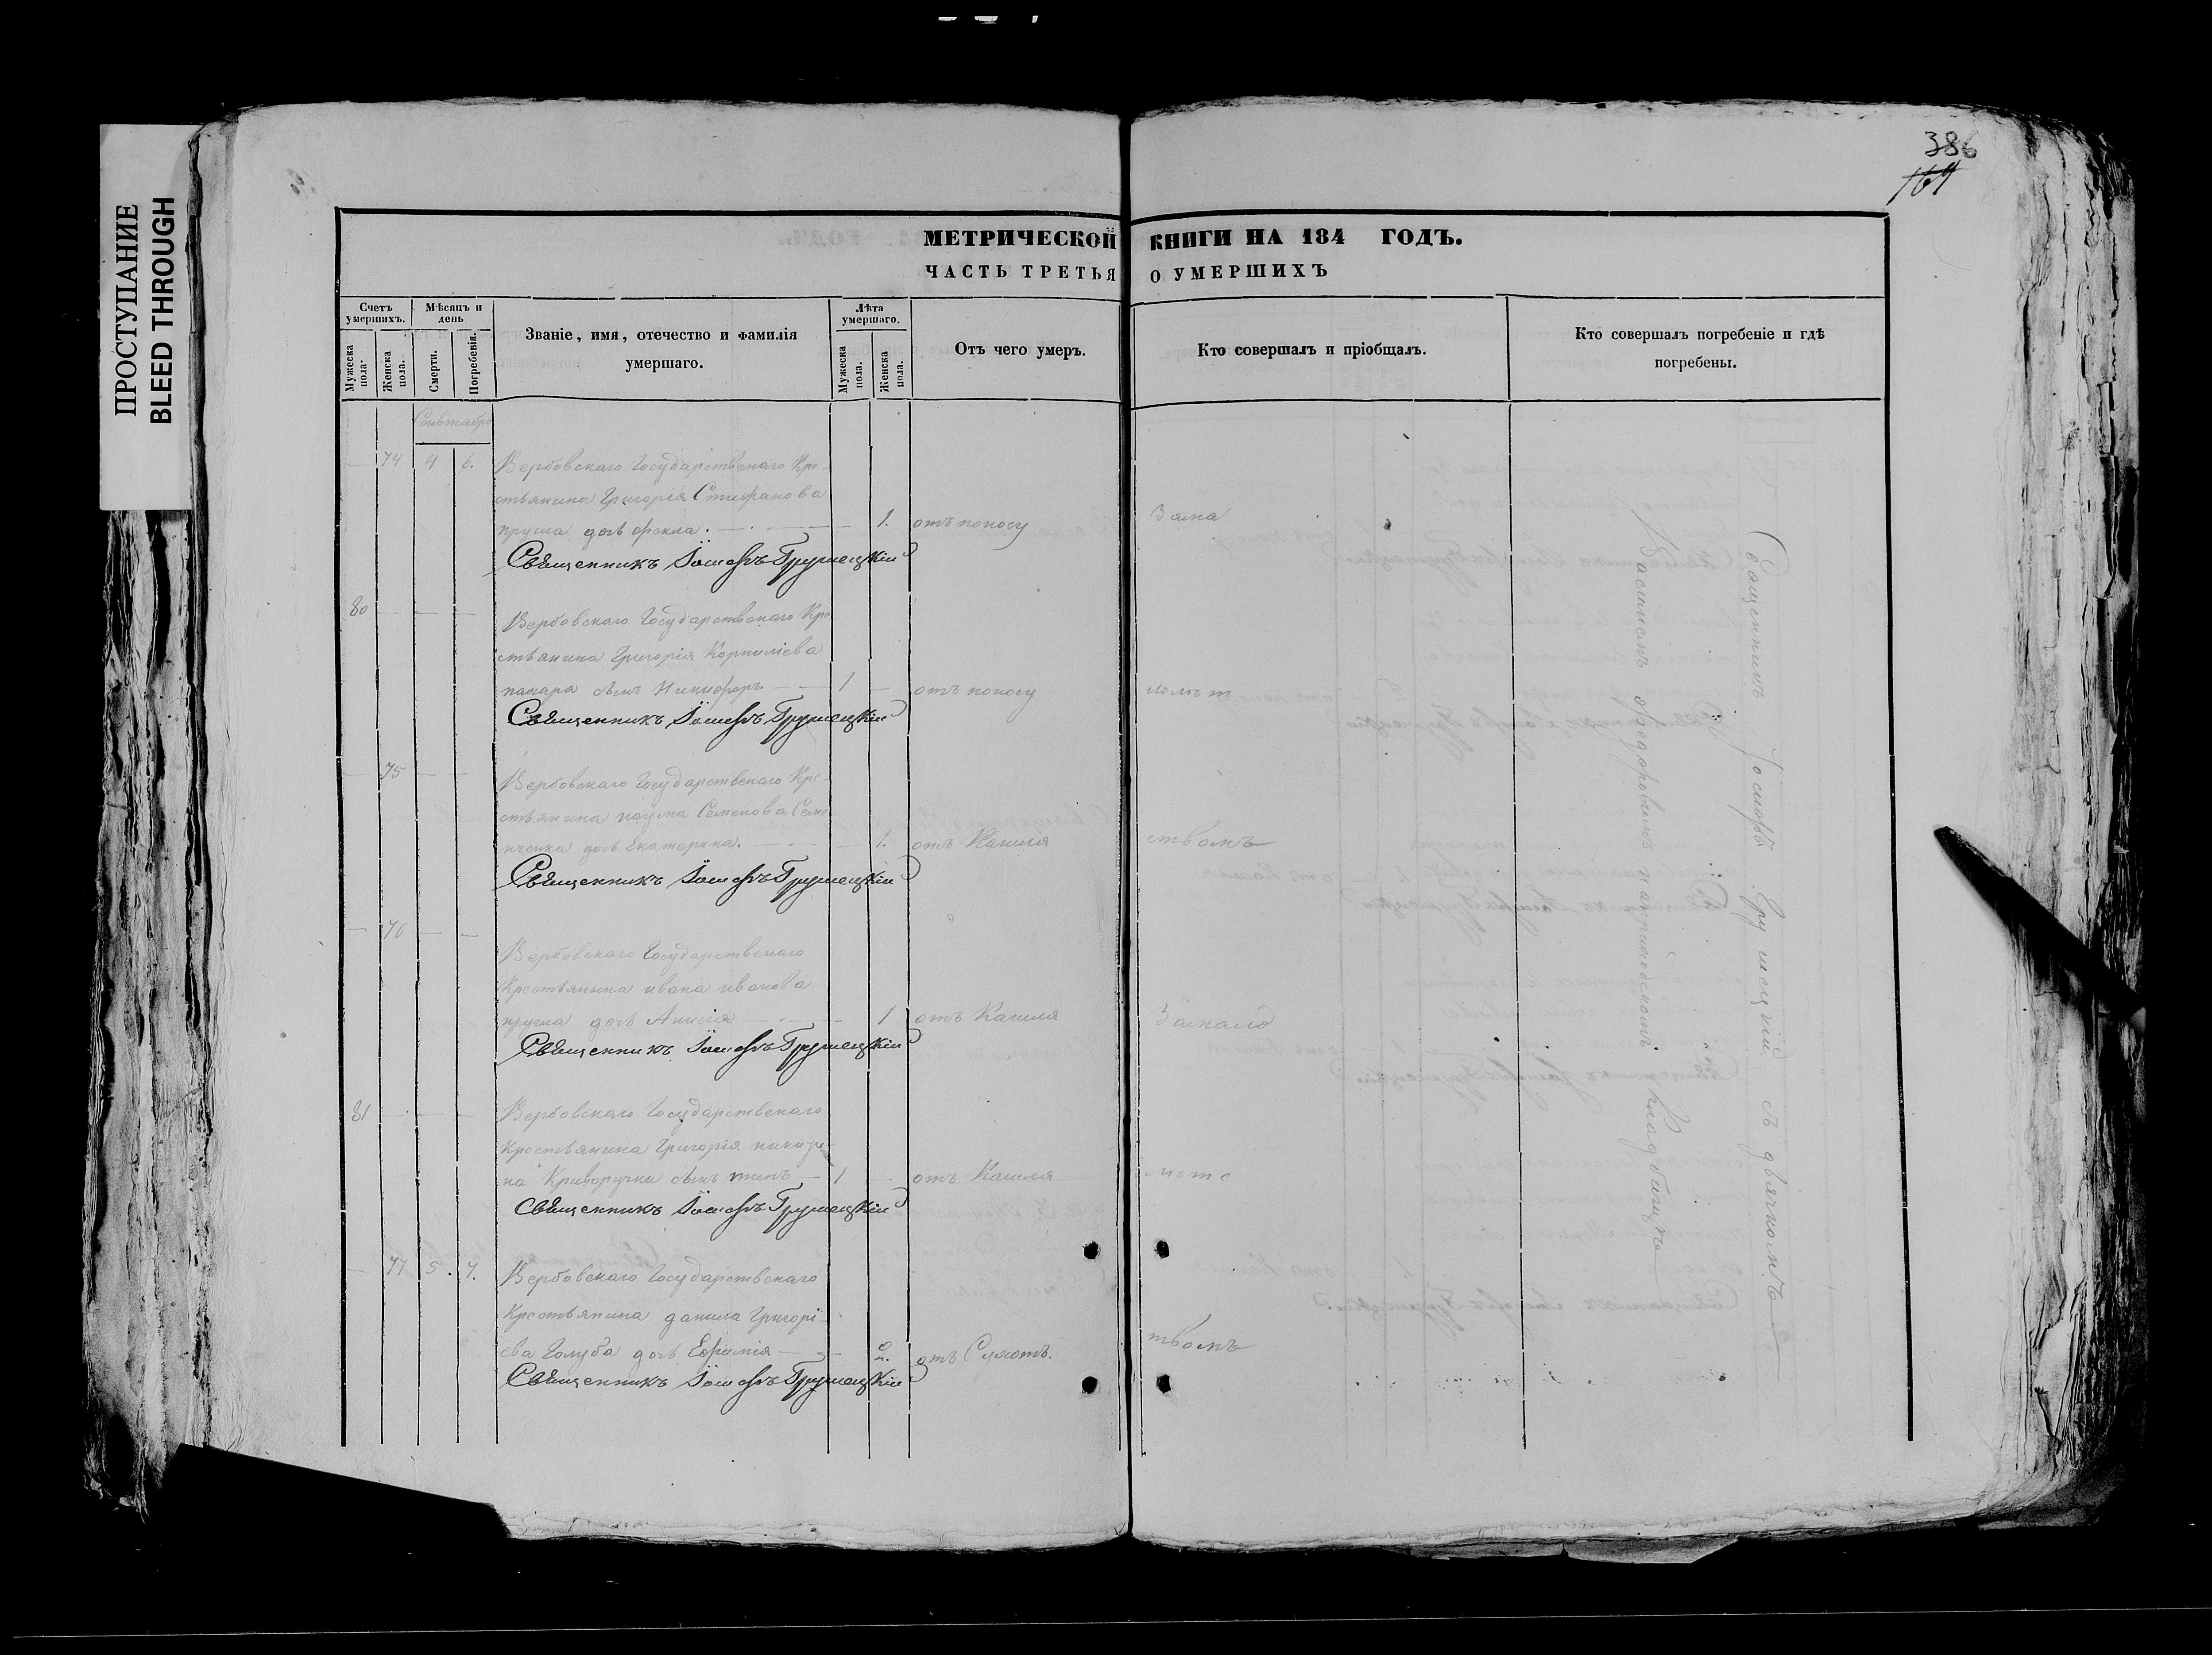 ПРОСТУПАНИЕ
BLEED THROUGH
386
164
МЕТРИЧЕСКОЙ КНИГИ НА 184 ГОДЪ.
ЧАСТЬ ТРЕТЬЯ О УМЕРШИХЪ
Счетъ умершихъ.
Мужеска пола.
Женска пола.
Мѣсяцъ и день
Смерти.
Погребенія.
Званіе, имя, отечество и фамилія
умершаго.
Лѣта умершаго.
Мужеска пола.
Женска пола.
Отъ чего умеръ.
Кто совершалъ и пріобщалъ.
Кто совершалъ погребеніе и гдѣ
погребены.
74 4 6. Вербовскаго Государственаго Кре-
стьянина Григорія Стефанова
дочь 1. отъ поносу
Священникъ Іосифъ Грушецкій
80 Вербовскаго Государственаго Кре
стьянина Григорія Корниліева
сынъ Никифоръ 1 отъ поносу
Священникъ Іосифъ Грушецкій
75 Вербовскаго Государственаго Кре-
стьянина наума Семенова Семе
дочь Екатерина. 1. отъ Кашля
ствомъ
Священникъ Іосифъ Грушецкій
76 Вербовскаго Государственаго
Крестьянина ивана иванова
дочь Анисія 1 отъ Кашля
Священникъ Іосифъ Грушецкій
81 Вербовскаго Государственаго
Крестьянина Григорія
на Криворучка сынъ 1 отъ Кашля
Священникъ Іосифъ Грушецкій
77 5. 7. Вербовскаго Государственаго
Крестьянина данила Григорі-
ева Голуба дочь Ефимія 2. отъ Сухотъ.
твомъ
Священникъ Іосифъ Грушецкій
Священникъ Іосифъ Грушецкій съ дьячкомъ
Василіемъ на приходскомъ Кладбищѣ